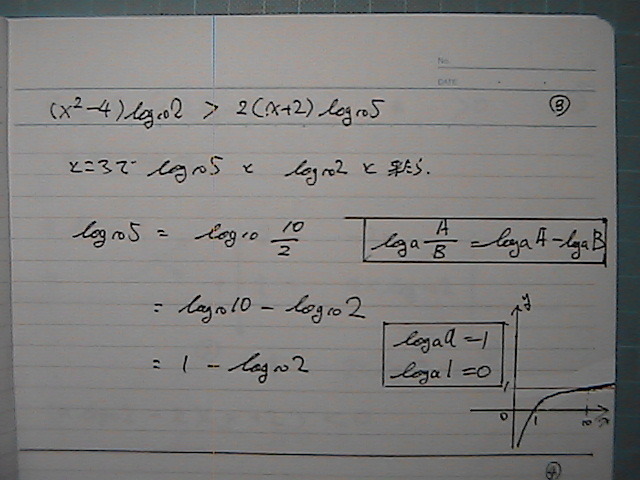 No.
DATE
(x²-4)log₁₀2 > 2(x+2)log₁₀5 ③
log₁₀5 log₁₀2
log₁₀5 = log₁₀ 10/2
logₐ A/B = logₐA - logₐB
= log₁₀10 - log₁₀2
= 1 - log₁₀2
logₐa = 1
logₐ1 = 0
y
1
0 1 10 x
④